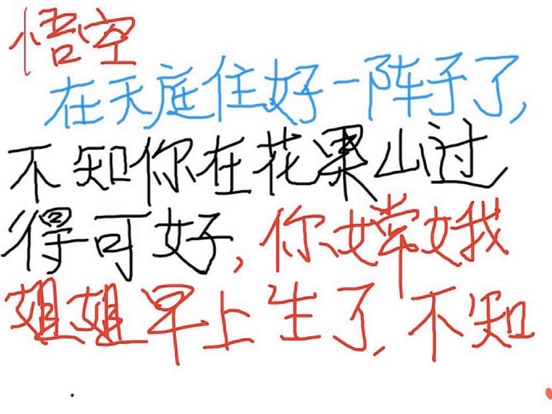 悟空
在天庭住好一阵子了,
不知你在花果山过
得可好,你嫦娥
姐姐早上生了,不知